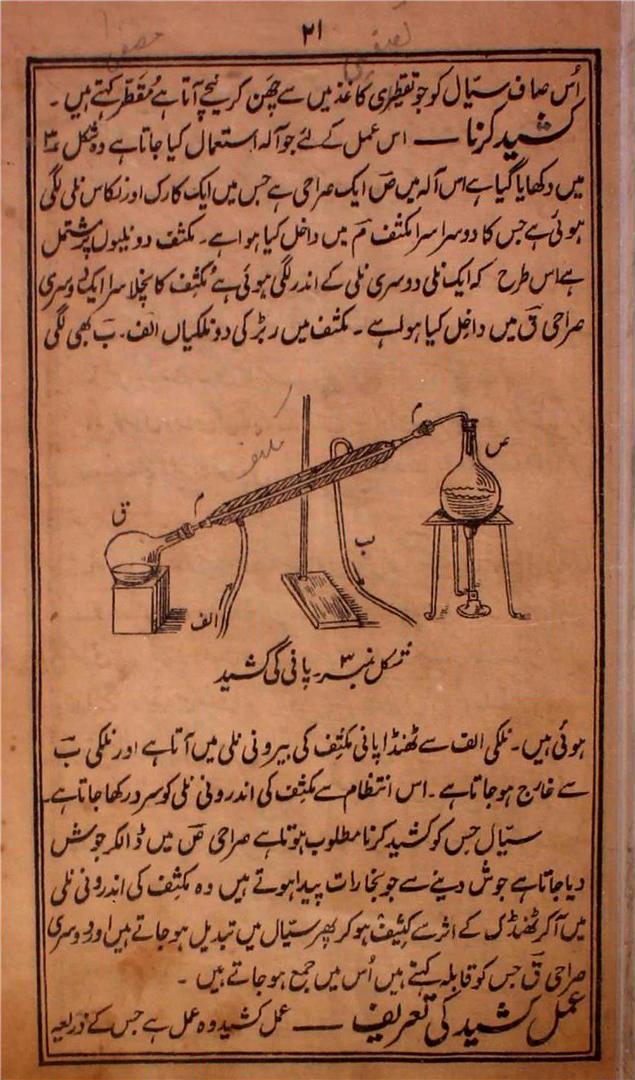 ۲۱
اُس صاف سیّال کو جو تقطیری کاغذ میں سے چھن کر نیچے آتا ہے مُقطّر کہتے ہیں ۔
کشید کرنا — اس عمل کے لئے جو آلہ استعمال کیا جاتا ہے وہ شکل ۳
میں دکھایا گیا ہے اس آلہ میں ص ایک صراحی ہے جس میں ایک کارک اور نکاس نلی لگی
ہوئی ہے جس کا دوسرا سرا مکثف م میں داخل کیا ہوا ہے ۔ مکثف دو نلیوں پر مشتمل
ہے اس طرح کہ ایک نلی دوسری نلی کے اندر لگی ہوئی ہے مکثف کا نچلا سرا ایک دوسری
صراحی ق میں داخل کیا ہوا ہے ۔ مکثف میں ربڑ کی دو نلکیاں الف ۔ ب بھی لگی
م
ص
مکثف
ق
م
ب
الف
شکل نمبر ۳ ۔ پانی کی کشید
ہوئی ہیں ۔ نلکی الف سے ٹھنڈا پانی مکثف کی بیرونی نلی میں آتا ہے اور نلکی ب
سے خارج ہو جاتا ہے ۔ اس انتظام سے مکثف کی اندرونی نلی کو سرد رکھا جاتا ہے ۔
سیّال جس کو کشید کرنا مطلوب ہوتا ہے صراحی ص میں ڈالکر جوش
دیا جاتا ہے جوش دینے سے جو بخارات پیدا ہوتے ہیں وہ مکثف کی اندرونی نلی
میں آکر ٹھنڈک کے اثر سے کثیف ہو کر پھر سیّال میں تبدیل ہو جاتے ہیں اور دوسری
صراحی ق جس کو قابلہ کہتے ہیں اُس میں جمع ہو جاتے ہیں ۔
عمل کشید کی تعریف — عمل کشید وہ عمل ہے جس کے ذریعہ